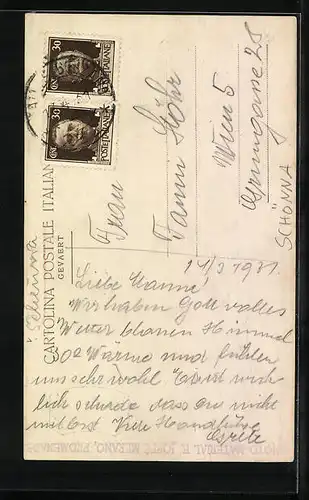 CENT. 30
POSTE ITALIANE
CENT. 30
POSTE ITALIANE
CARTOLINA POSTALE ITALIANA
GEVAERT
Schenna
Frau
Wien 5
SCHÖNNA
14/3 1931
Liebe Hanne!
Wir haben Gott volles
Wetter blauen Himmel
30° Wärme und fühlen
uns sehr wohl Es ist wirk
lich schade dass du nicht
mit bist Viele Handküsse
Grete
FOTO MATERIAL E. MERANO, PROMENADE